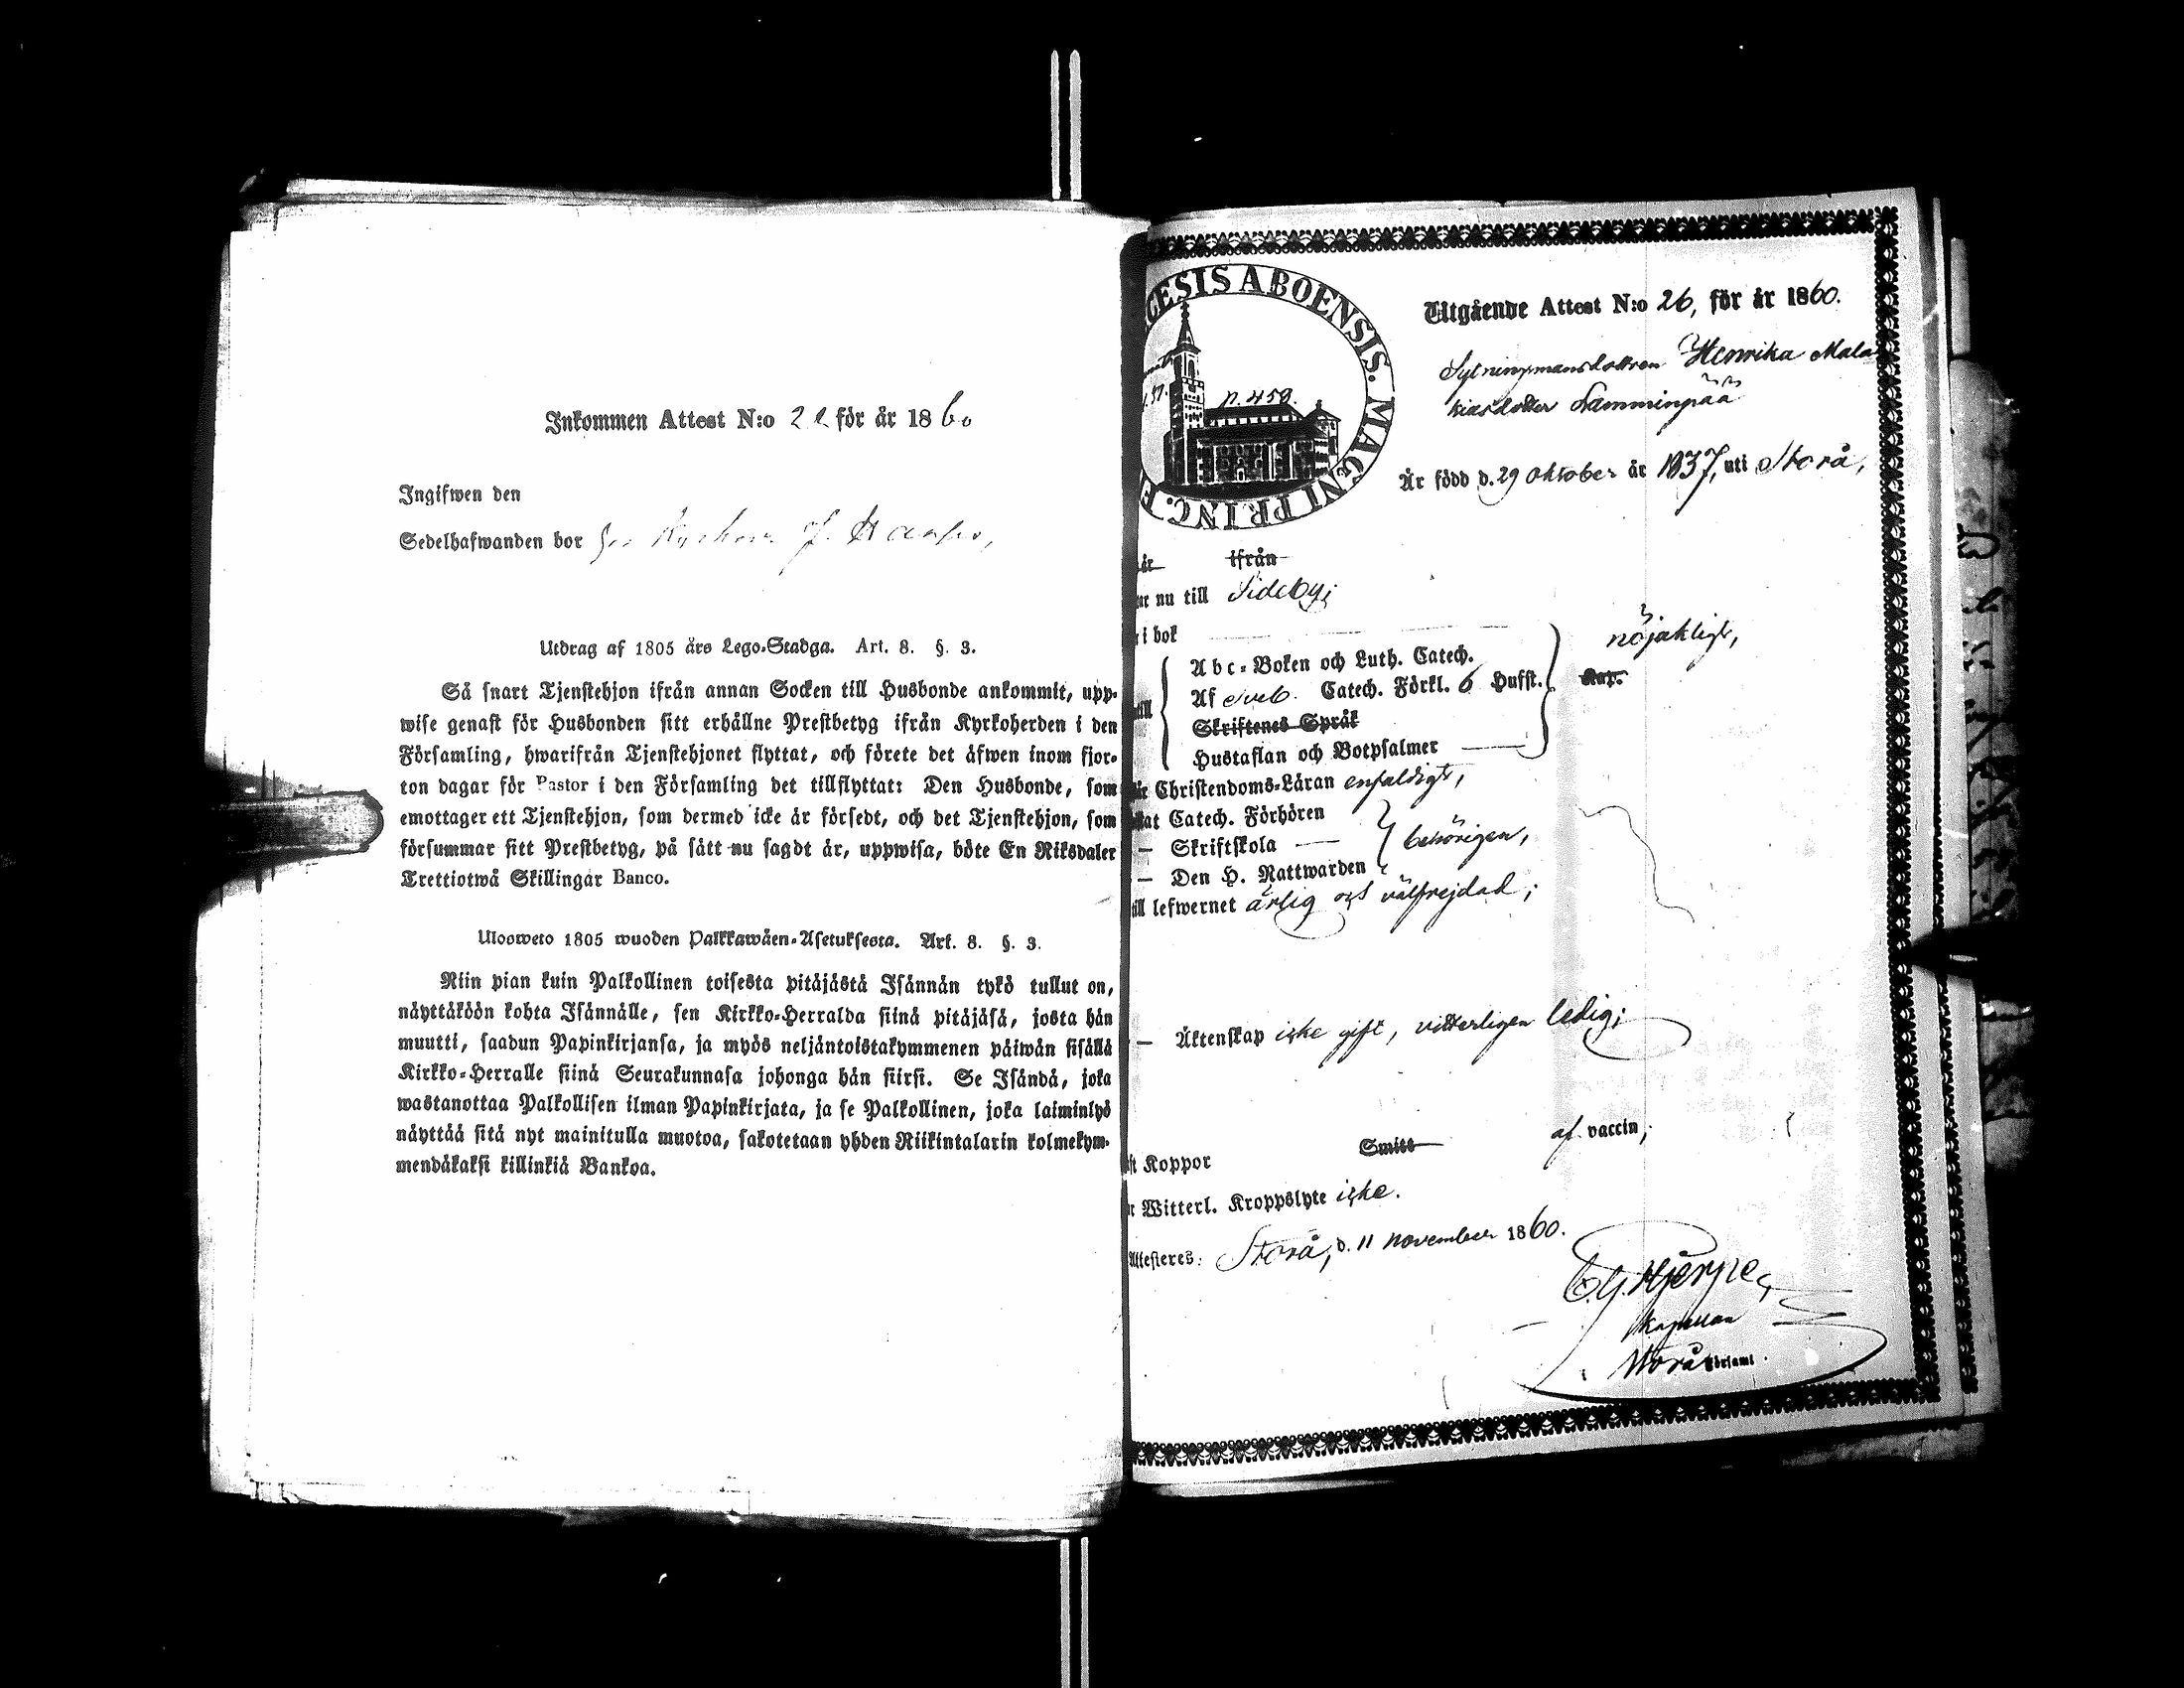 Inkommen Attest N:o 22 för år 1860
Ingifwen den
Sedelhafwanden bor
Utdrag af 1805 års Lego-Stadga. Art. 8. §. 3.
Så snart Tjenstehjon ifrån annan Socken till Husbonde ankommit, upp-
wise genast för Husbonden sitt erhållne Prestbetyg ifrån Kyrkoherden i den
Församling, hwarifrån Tjenstehjonet flyttat, och förete det äfwen inom fjor-
ton dagar för Pastor i den Församling det tillflyttat: Den Husbonde, som
emottager ett Tjenstehjon, som dermed icke är försedt, och det Tjenstehjon, som
försummar sitt Prestbetyg, på sätt nu sagdt är, uppwisa, böte En Riksdaler
Trettiotwå Skillingar Banco.
Ulosweto 1805 wuoden Palkkawäen-Asetuksesta. Art. 8. §. 3.
Niin pian kuin Palkollinen toisesta pitäjästä Isännän tykö tullut on,
näyttäköön kohta Isännälle, sen Kirkko-Herralda siinä pitäjäsä, josta hän
muutti, saadun Papinkirjansa, ja myös neljäntoistakymmenen päiwän sisällä
Kirkko-Herralle siinä Seurakunnasa johonga hän siirsi. Se Isändä, joka
wastanottaa Palkollisen ilman Papinkirjata, ja se Palkollinen, joka laiminlyö
näyttää sitä nyt mainitulla muotoa, sakotetaan yhden Riikintalarin kolmekym-
mendäkaksi killinkiä Bankoa.
ESIS ABOENSIS. MAGNI PRINC.
p. 458.
Utgående Attest N:o 26, för år 1860.
Sytningsmansdottren Henrika Mala-
kiasdotter Samminpää
Är född d. 29 Oktober år 1837, uti Storå,
år ifrån
nu till Sideby;
i bok
nöjaktigt,
Abc-Boken och Luth. Catech.
Af Sveb. Catech. Förkl. 6 Hufst. Kap.
till
Skriftenes Språk
Hustaflan och Botpsalmer
Christendoms-Läran enfaldigt,
Catech. Förhören
— Skriftskola — behörigen,
— Den H. Nattwarden
till lefwernet ärlig och välfrejdad;
— Äktenskap icke gift, vitterligen ledig;
Koppor Smitt af vaccin,
Witterl. Kroppslyte icke.
Attesteres: Storå, d. 11 November 1860.
C.G. Hjerpe,
Kapellan
Storå Församl.